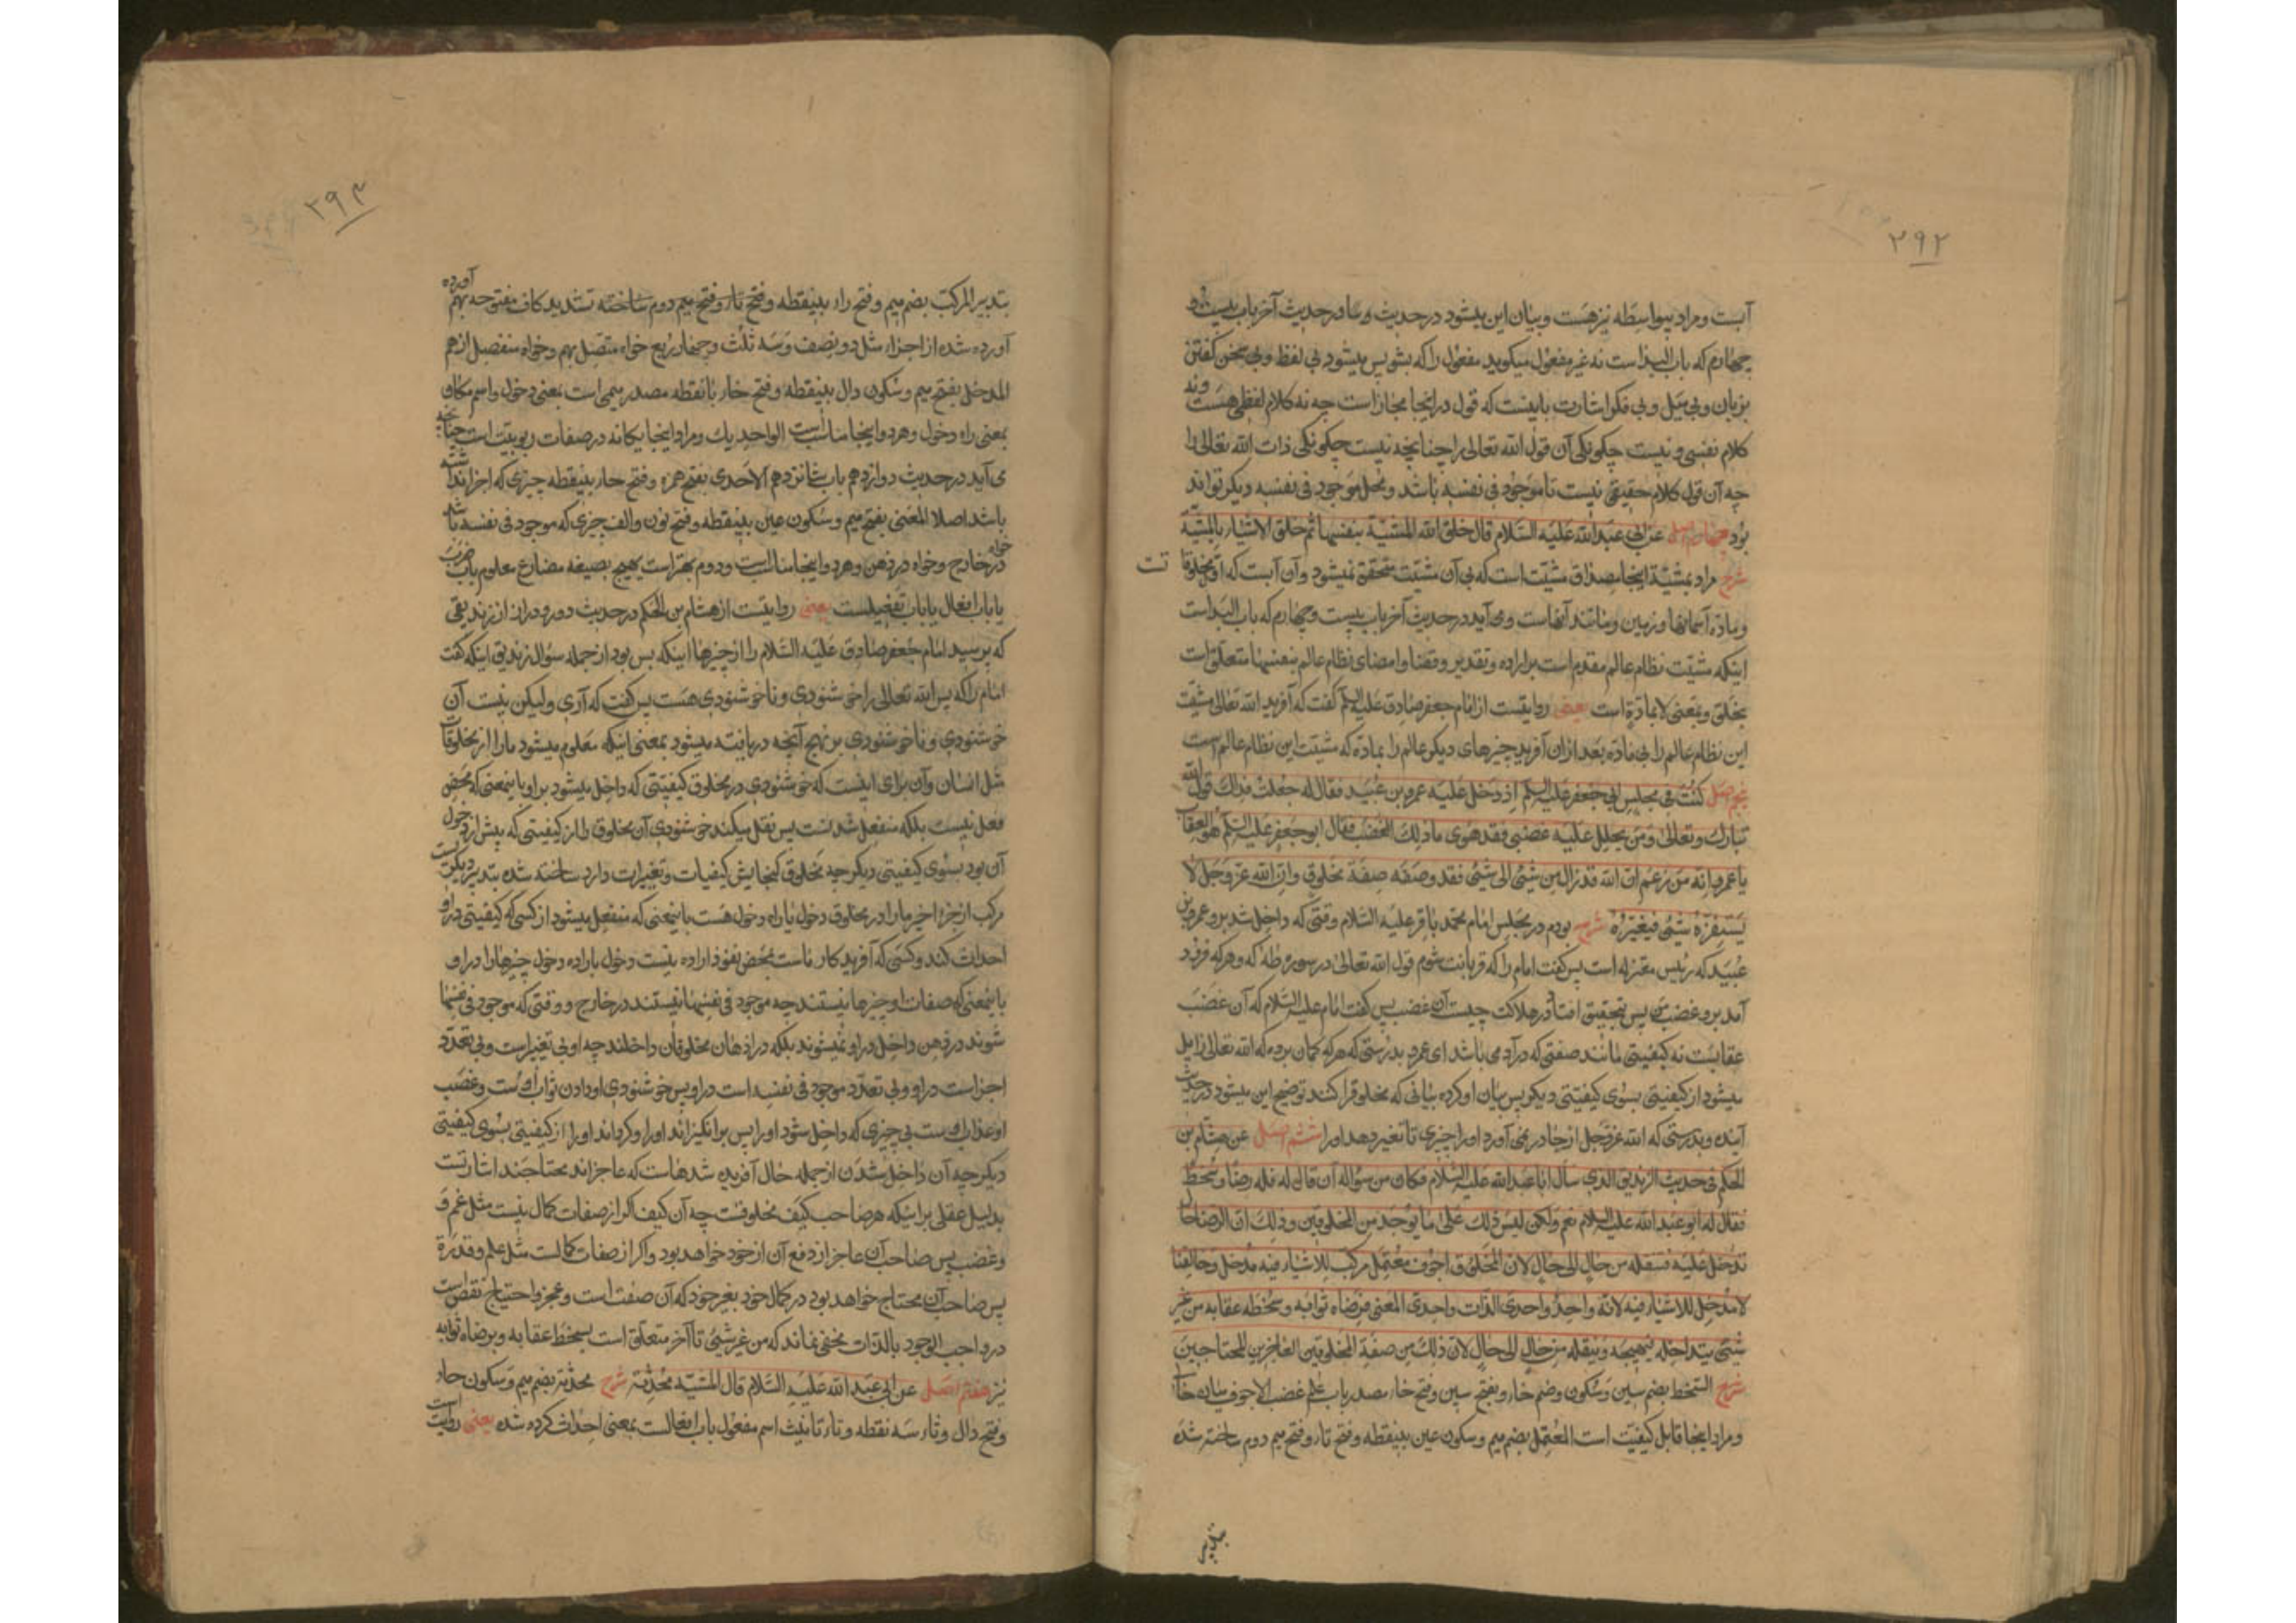 ۲۹۲
آبست و مراد بیواسطه نیز هست و بیان این میشود در حدیث و در حدیث آخر باب بیست و
چهارم که باب البداست نه غیر مفعول میکوید مفعول را که بشو پس میشود بی لفظ و بی سخن کفتن
بزبان و بی میل و بی فکر اشارت باینست که قول در اینجا مجاز است چه نه کلام لفظی هست و نه
کلام نفسی و نیست چکونکی آن قول الله تعالی را چنانچه نیست چکونکی ذات الله تعالی را
چه آن قول کلام حقیقی نیست تا موجود فی نفسه باشد و محل موجود فی نفسه دیکر تواند
بود چهارم اصل عن ابی عبد الله علیه السلام قال خلق الله المشیة بنفسها ثم خلق الاشیاء بالمشیة
شرح مراد بمشیة اینجا مصداق مشیت است که بی آن مشیت متحقق نمیشود و آن آبست که اول مخلوقات
و مادّه آسمانها و زمین و مانند آنهاست و می آید در حدیث آخر باب بیست و چهارم که باب البداست
اینکه مشیت نظام عالم مقدم است بر اراده و تقدیر و قضا و امضای نظام عالم بنفسها متعلق است
بخلق و بمعنی لا بمادّة است یعنی روایتست از امام جعفر صادق علیه السلم کفت که آفرید الله تعالی مشیت
این نظام عالم را بی مادّه بعد ازان آفرید چیزهای دیکر عالم را بمادّه که مشیت این نظام عالم است
پنجم اصل کنت فی مجلس ابی جعفر علیه السلم اذ دخل علیه عمرو بن عبید فقال له جعلت فداک قول الله
تبارک و تعالی و من یحلل علیه غضبی فقد هوی ما ذلک الغضب فقال ابو جعفر علیه السلم هو العقاب
یا عمرو انه من زعم ان الله قد زال من شیئ الی شیئ فقد وصفه صفة مخلوق و ان الله عز و جل لا
یستفزّه شیئ فیغیّره شرح بودم در مجلس امام محمد باقر علیه السلام وقتی که داخل شد برو عمرو بن
عبید که رئیس معتزله است پس کفت امام را که قربانت شوم قول الله تعالی در سوره طه که و هر که فرود
آمد برو غضب من پس بتحقیق افتاد در هلاکت چیست آن غضب پس کفت امام علیه السلام که آن غضب
عقابست نه کیفیتی مانند صفتی که در آدمی باشد ای عمرو بدرستی که هر که کمان برده که الله تعالی زایل
میشود از کیفیتی بسوی کیفیتی دیکر پس بیان او کرده بیانی که مخلوق را کنند توضیح این میشود در حدیث
آینده و بدرستی که الله عز و جل از جا در نمی آورد او را چیزی تا تغیر دهد او را ششم اصل عن هشام بن
الحکم فی حدیث الزندیق الذی سأل ابا عبد الله علیه السلام فکان من سؤاله ان قال له فله رضا و سخط
فقال له ابو عبد الله علیه السلام نعم ولکن لیس ذلک علی ما یوجد من المخلوقین و ذلک ان الرضا حال
تدخل علیه فتنقله من حال الی حال لان المخلوق اجوف معتمل مرکب للاشیاء فیه مدخل و خالقنا
لا مدخل للاشیاء فیه لانه واحد واحدی الذات واحدی المعنی فرضاه ثوابه و سخطه عقابه من غیر
شیئ یتداخله فیهیجه و ینقله من حال الی حال لان ذلک من صفة المخلوقین العاجزین المحتاجین
شرح السخط بضم سین و سکون و ضم خاء و بفتح سین و فتح خاء مصدر باب علم غضب الاجوف میان خالی
و مراد اینجا قابل کیفیت است المعتمل بضم میم و سکون عین بینقطه و فتح تاء و فتح میم دوم ساخته شده
بتدبیر
۲۹۳
بتدبیر المرکب بضم میم و فتح راء بینقطه و فتح تاء و فتح میم دوم ساخته تشدید کاف مفتوحه بهم آورده
آورده شده از اجزاء مثل دو نصف و سه ثلث و چهار ربع خواه متصل بهم و خواه منفصل از هم
المدخل بفتح میم و سکون دال بینقطه و فتح خاء با نقطه مصدر میمی است بمعنی دخول و اسم مکان
بمعنی راه دخول و هر دو اینجا مناسب است الواحد یک و مراد اینجا یکانه در صفات ربوبیت است چنانچه
می آید در حدیث دوازدهم باب شانزدهم الاحدی بفتح همزه و فتح حاء بینقطه چیزی که اجزا نداشته
باشد اصلا المعنی بفتح میم و سکون عین بینقطه و فتح نون و الف چیزی که موجود فی نفسه باشد
خواه در خارج و خواه در ذهن و هر دو اینجا مناسب است و دوم بهتر است یهیج بصیغه مضارع معلوم باب ضرب
یا باب افعال یا باب تفعیلست یعنی روایتست از هشام بن الحکم در حدیث دور و دراز از زندیقی
که پرسید امام جعفر صادق علیه السلام را از چیزها اینکه پس بود از جمله سؤال زندیق اینکه کفت
امام را که پس الله تعالی را خوشنودی و ناخوشنودی هست پس کفت که آری و لیکن نیست آن
خوشنودی و ناخوشنودی بر نهج آنچه دریافته میشود بمعنی اینکه معلوم میشود ما را از مخلوقات
مثل انسان و آن برای اینست که خوشنودی در مخلوق کیفیتی که داخل میشود بر او باینمعنی که محض
فعل نیست بلکه منفعل شدنست پس نقل میکند خوشنودی آن مخلوق را از کیفیتی که پیش از دخول
آن بود بسوی کیفیتی دیکر چه مخلوق کنجایش کیفیات و تغییرات دارد ساخته شده بتدبیر دیکریست
مرکب از جزء اخیر ما را در مخلوق دخول یا راه دخول هست باینمعنی که منفعل میشود از کسی که کیفیتی در او
احداث کند و کسی که آفریدکار ماست بمحض نفوذ اراده نیست دخول یا راه دخول چیزها را در او
باینمعنی که صفات او چیزها نیستند چه موجود فی نفسها نیستند در خارج و وقتی که موجود فی نفسها
شوند در ذهن داخل در او نمیشوند بلکه در اذهان مخلوقان داخلند چه او بی تغیر است و بی تعدد
اجزاست در او و بی تعدد موجود فی نفسه است در او پس خوشنودی او دادن ثواب اوست و غضب
او عذاب اوست بی چیزی که داخل شود او را پس برانکیزاند او را و کرداند او را از کیفیتی بسوی کیفیتی
دیکر چه آن داخل شدن از جمله حال آفریده شدهاست که عاجزاند محتاجند اشارتست
بدلیل عقلی بر اینکه هر صاحب کیف مخلوقست چه آن کیف اکر از صفات کمال نیست مثل غم و
و غضب پس صاحب آن عاجز از دفع آن از خود خواهد بود و اکر از صفات کمالست مثل علم و قدرة
پس صاحب آن محتاج خواهد بود در کمال خود بغیر خود که آن صفت است و عجز و احتیاج نقص است
در واجب الوجود بالذات مخفی نماند که من غیر شیئ تا آخر متعلق است بسخطه عقابه و برضاه ثوابه
نیز هفتم اصل عن ابی عبد الله علیه السلام قال المشیة محدثة شرح محدثة بضم میم و سکون حاء
و فتح دال و ثاء سه نقطه و تاء تانیث اسم مفعول باب افعالست بمعنی احداث کرده شده یعنی روایت است